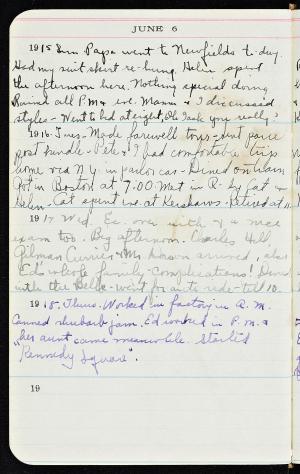 JUNE 6
1915 Sun Papa went to Newfields to-day.
Had my suit skirt re-hung. Helen spent
the afternoon here. Nothing special doing
Rained all P.M & eve. Mama & I discussed
styles - Went to bed at eight, Oh Jack you really?
1916. Tues - Made farewell tour - sent
post bundle - Pete & I had comfortable trip
home via N.Y. in parlor car - Dined on train
Got in Boston at 7.00 Met in R - by Cat &
Helen - Cat spent eve. at Kershaws - Retired at 11
1917 Wed. Ec. over with & a nice
exam too. By afternoon. Charles Hall,
Gilman Currier & Mr. arrived, also
Ed's whole family - Complications! Dined
with the Bells - went for auto ride - till 10.
1918. Thurs. Worked in factory in A.M.
Canned rhubarb jam. Ed worked in P.M. &
his aunt came meanwhile. Started
"Kennedy Square".
19